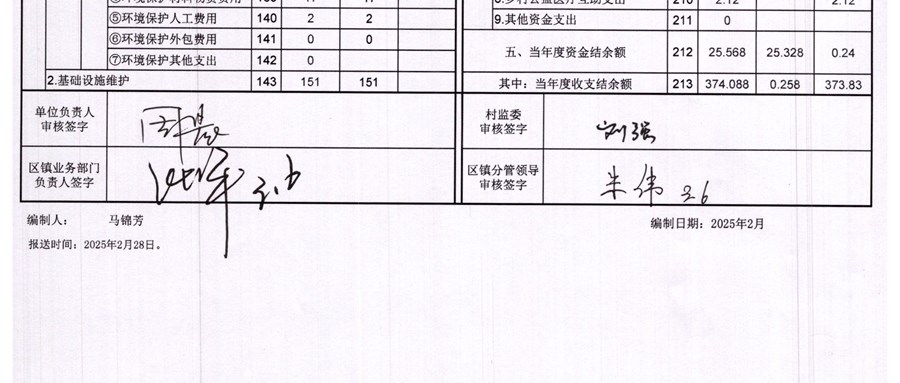 ⑤环境保护人工费用 140 2 2
⑥环境保护外包费用 141 0 0
⑦环境保护其他支出 142 0
2.基础设施维护 143 151 151
9.其他资金支出 211 0
五、当年度资金结余额 212 25.568 25.328 0.24
其中：当年度收支结余额 213 374.088 0.258 373.83
单位负责人
审核签字
村监委
审核签字
刘强
区镇业务部门
负责人签字
3.6
区镇分管领导
审核签字
朱伟 3.6
编制人： 马锦芳
编制日期：2025年2月
报送时间：2025年2月28日。